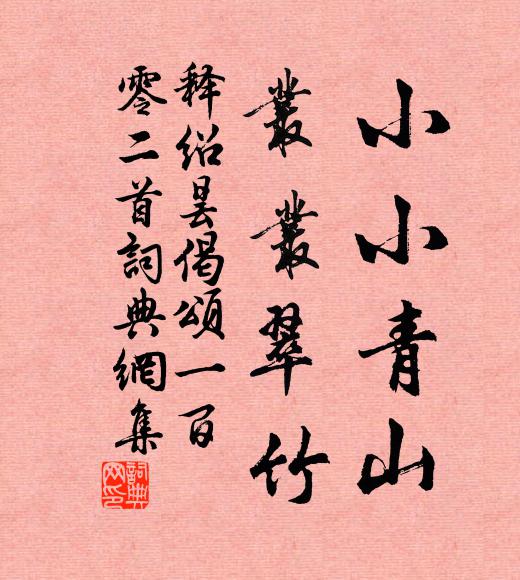 小小青山
叢叢翠竹
释绍昙偈頌一百
零二首詞典網集
詞典网印